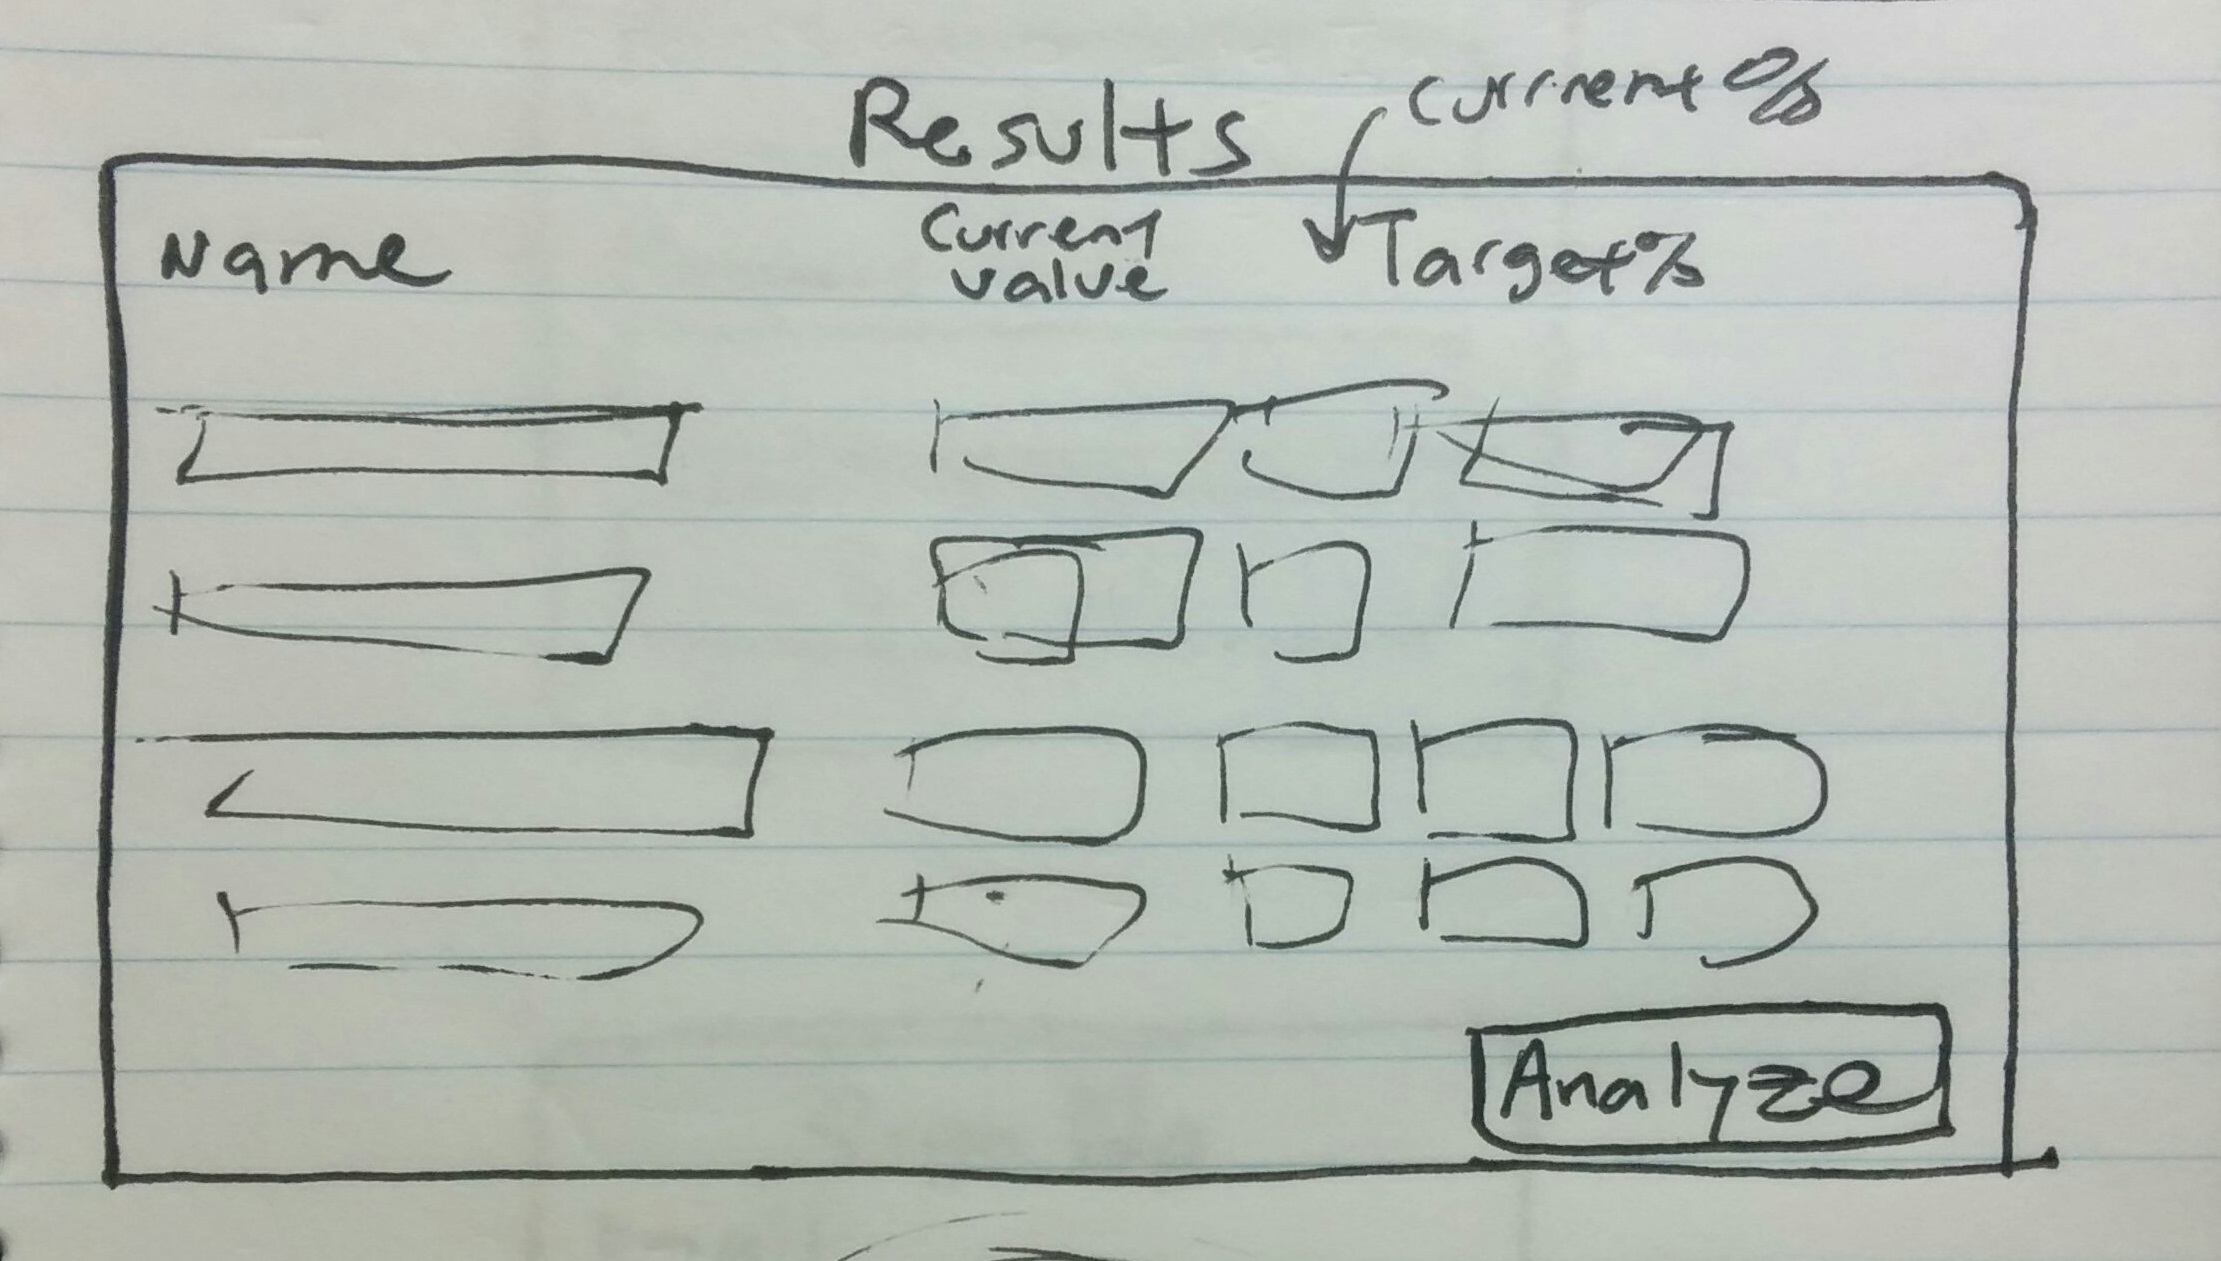 Results
Current %
Name
Current
value
Target %
Analyze